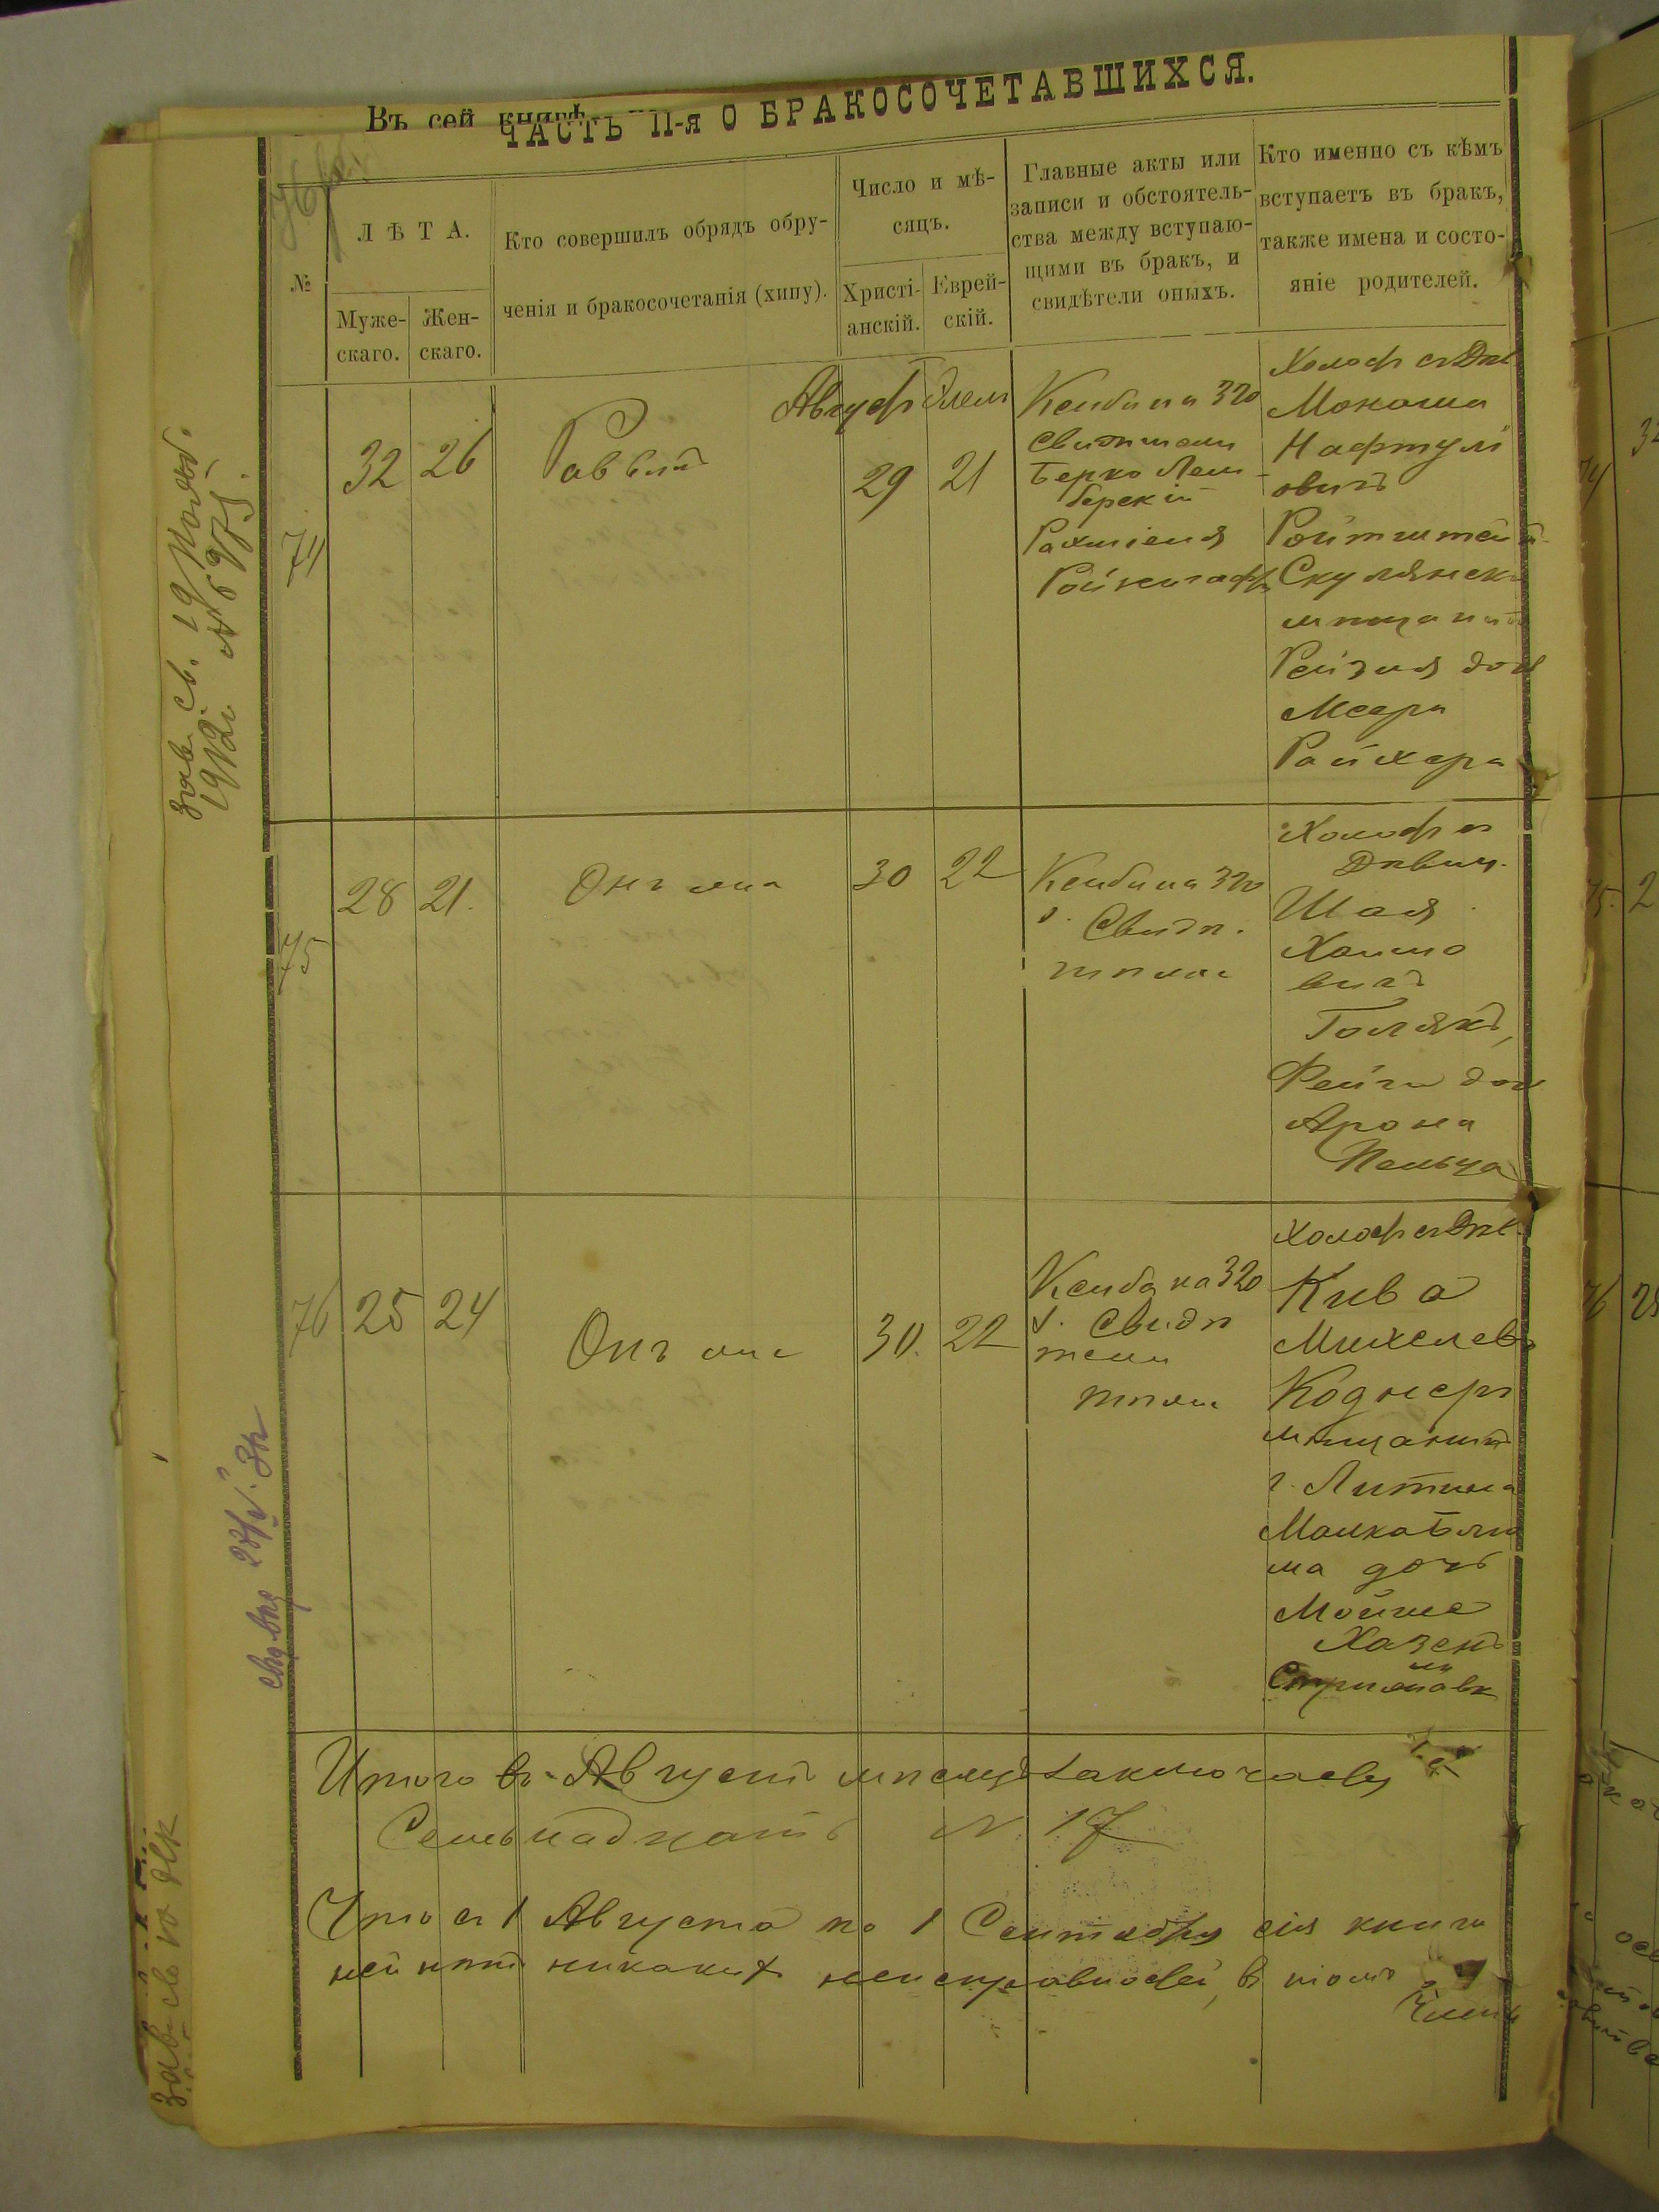 Въ сей книгѣ
ЧАСТЬ II-я О БРАКОСОЧЕТАВШИХСЯ.
№
ЛѢТА.
Муже-
скаго.
Жен-
скаго.
Кто совершилъ обрядъ обру-
ченія и бракосочетанія (хипу).
Число и мѣ-
сяцъ.
Христі-
анскій.
Еврей-
скій.
Главные акты или
записи и обстоятель-
ства между вступаю-
щими въ бракъ, и
свидѣтели оныхъ.
Кто именно съ кѣмъ
вступаетъ въ бракъ,
также имена и состо-
яніе родителей.
74
32
26
Раввинъ
Август
29
21
на 320
Свидѣтели
Берко
Холост съ Дѣв
Монаша
Нафтул
овичъ
Ройтштейн
Скулянск
мѣщанинъ
Рейзя доч
Меера
Райхера
75
28
21.
Онъ же
30
22
на 320
Свидѣ
тѣже
Холост съ
Дѣвиц.
Шая
Хаимо
вичъ
Голякъ,
Фейга доч
Арона
Пельца
76
25
24
Онъ же
30.
22
на 320
Свидѣ
тели
тѣже
Холост съ Дѣв.
Кива
Михелев
Коднер
мѣщанинъ
г. Литина
Малка Блю
ма дочь
Мойше
Хазенъ
Итого въ Августѣ мѣсяцѣ заключаевъ
Семьнадцать N 17
Что съ 1 Августа по 1 Сентября сія книга
ней нѣтъ никаких неисправностей, в томъ
1912 г № 6975.